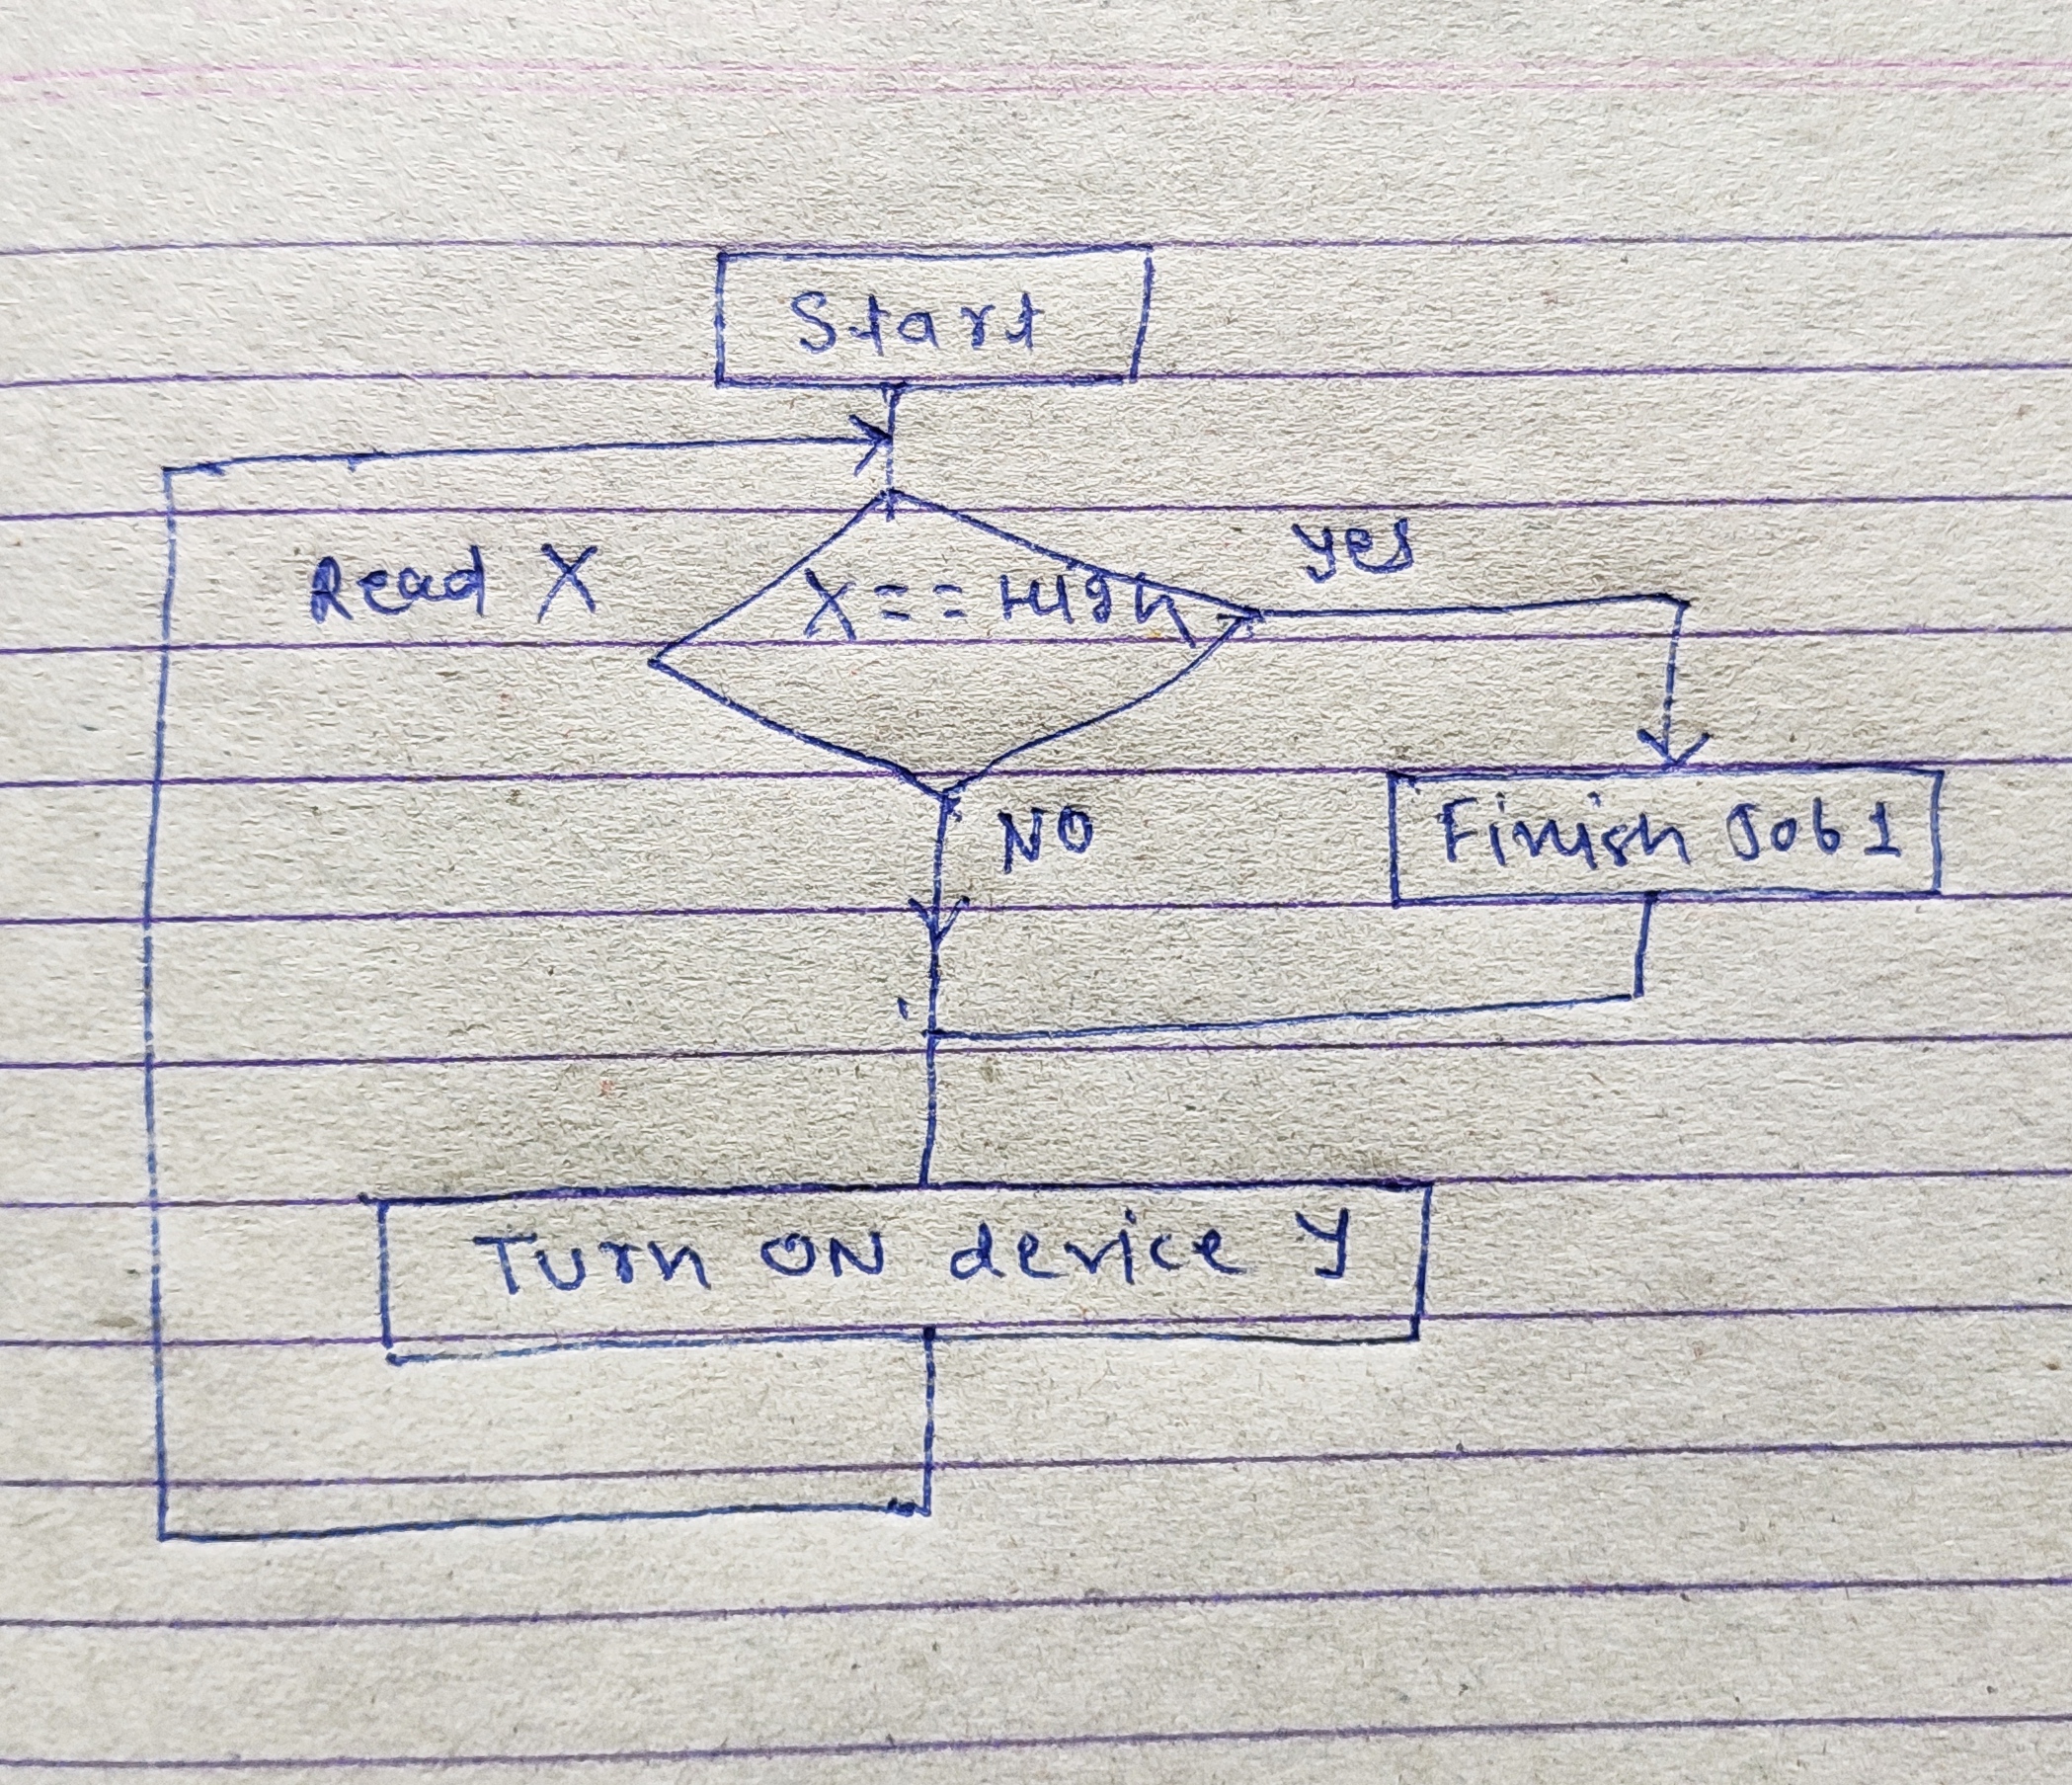 Start
yes
Read X
X==High
NO
Finish Job 1
Turn ON device Y